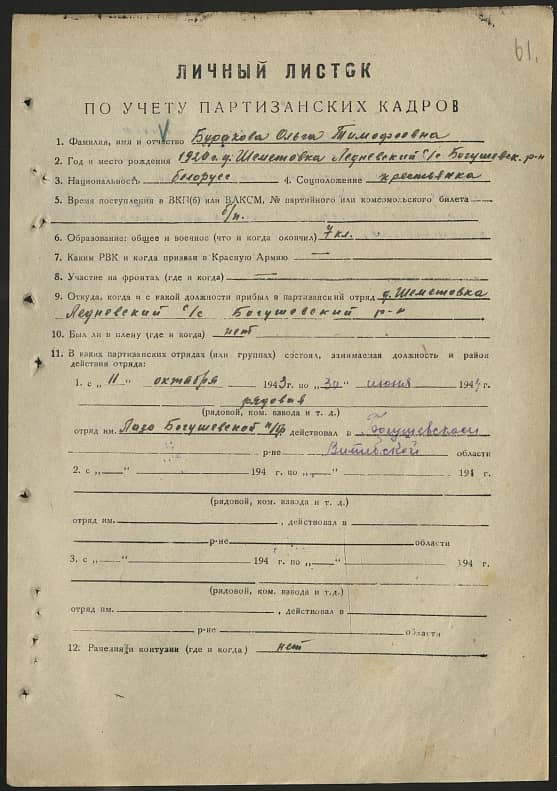 61.
ЛИЧНЫЙ ЛИСТОК
ПО УЧЕТУ ПАРТИЗАНСКИХ КАДРОВ
1. Фамилия, имя и отчество Буракова Ольга Тимофеевна
2. Год и место рождения 1920 г. д. Шеметовка Ледневский с/с Богушевск. р-н
3. Национальность белорус 4. Соцположение крестьянка
5. Время поступления в ВКП(б) или ВЛКСМ, № партийного или комсомольского билета
б/п.
6. Образование: общее и военное (что и когда окончил) 7 кл.
7. Каким РВК и когда призван в Красную Армию —
8. Участие на фронтах (где и когда) —
9. Откуда, когда и с какой должности прибыл в партизанский отряд д. Шеметовка
Ледневский с/с Богушевский р-н
10. Был ли в плену (где и когда) нет
11. В каких партизанских отрядах (или группах) состоял, занимаемая должность и район
действия отряда:
1. с „11" октября 1943 г. по „30" июня 1944 г.
рядовая
(рядовой, ком. взвода и т. д.)
отряд им. Лазо Богушевской п/бр действовал в Богушевском
р-не Витебской области
2. с „ " 194 г. по „ " 194 г.
(рядовой, ком. взвода и т. д.)
отряд им. , действовал в
р-не области
3. с „ " 194 г. по „ " 194 г.
(рядовой, ком. взвода и т.д.)
отряд им. , действовал в
р-не области
12. Ранения и контузии (где и когда) нет